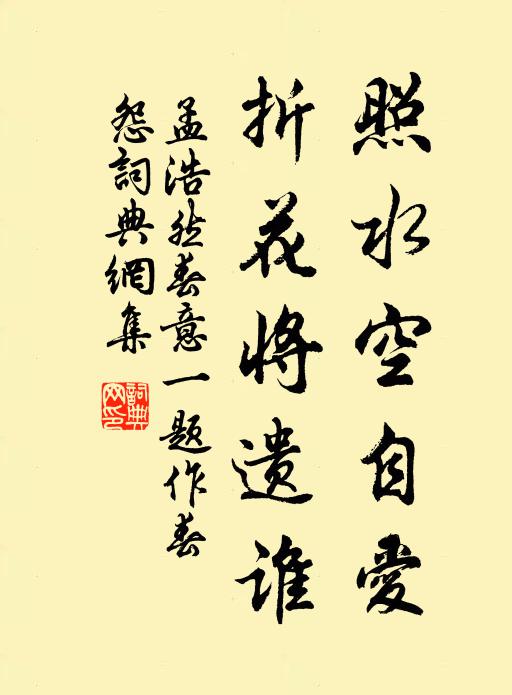 照水空自愛
折花將遺誰
孟浩然春意一題作春
怨詞典網集
詞典
网印